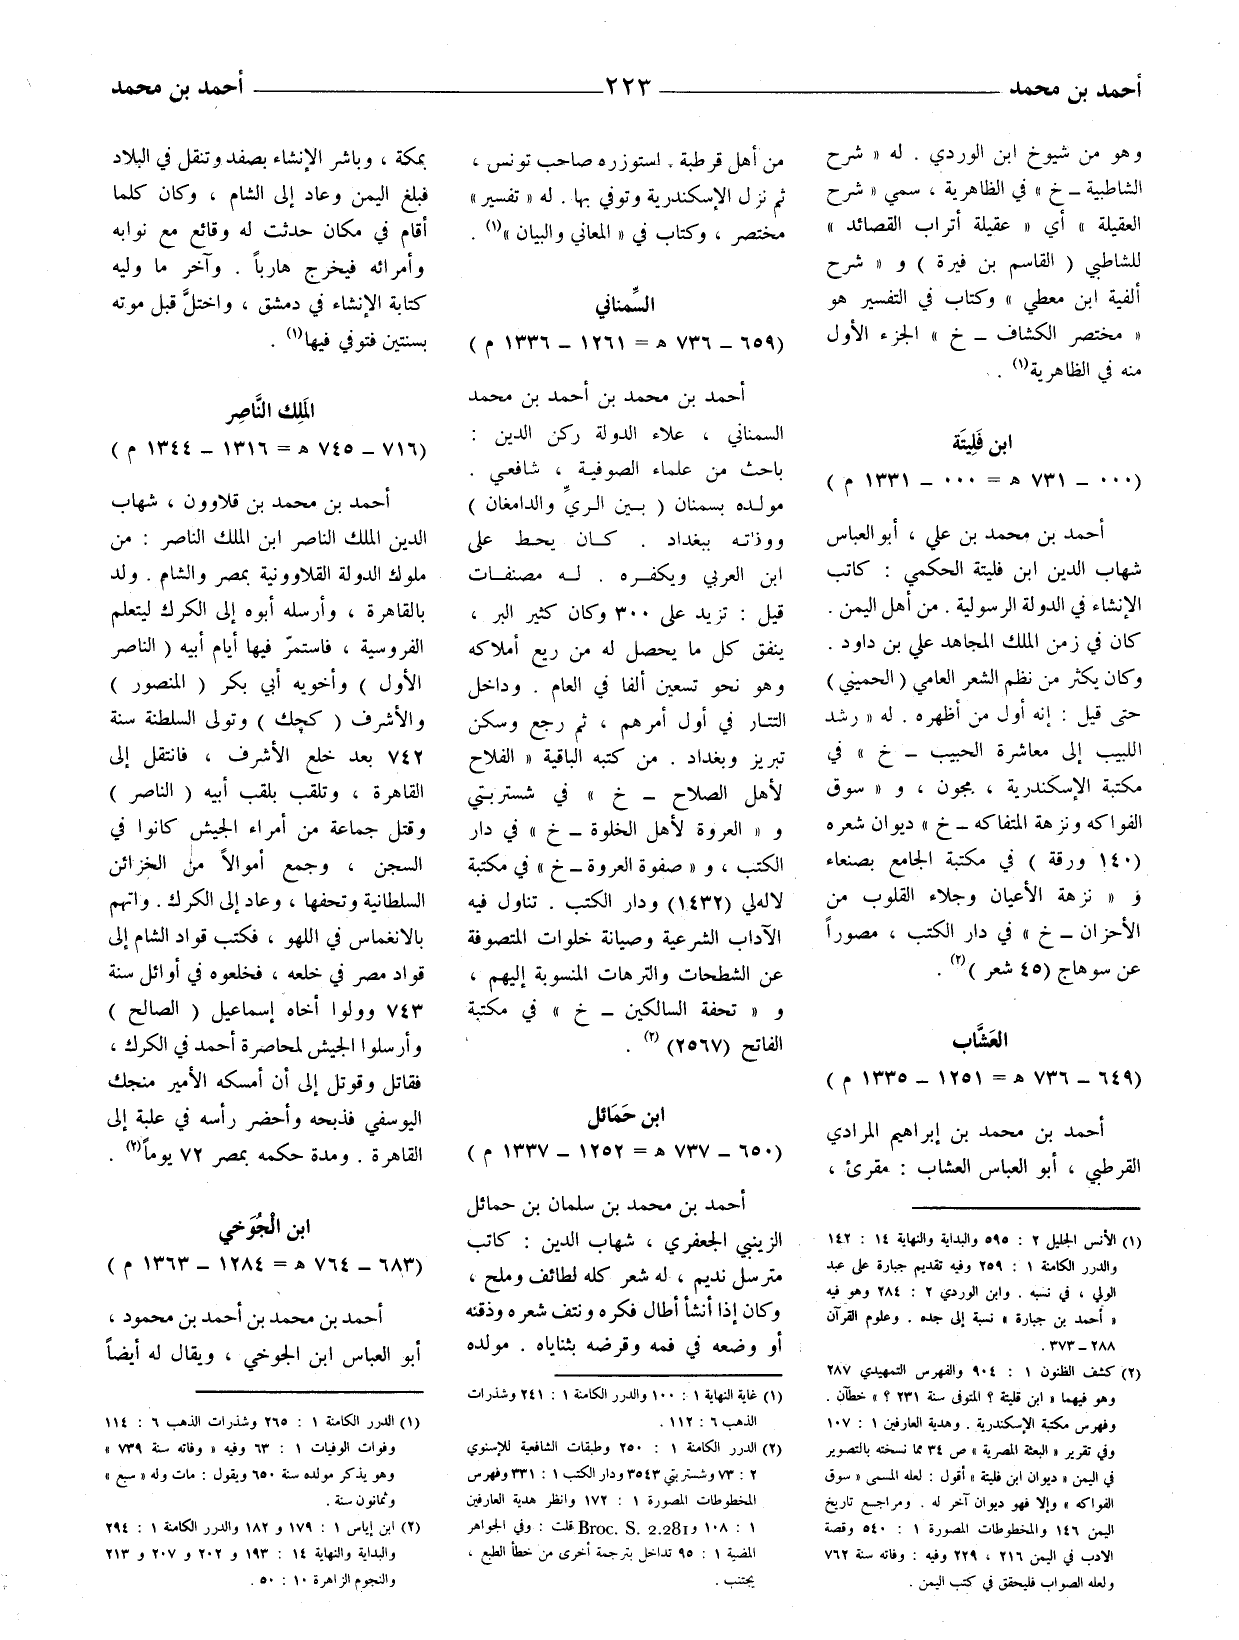 أحمد بن محمد ٢٢٣ أحمد بن محمد
وهو من شيوخ ابن الوردي . له « شرح
الشاطبية ــ خ » في الظاهرية ، سمي « شرح
العقيلة » أي « عقيلة أتراب القصائد »
للشاطبي ( القاسم بن فيرة ) و « شرح
ألفية ابن معطي » وكتاب في التفسير هو
« مختصر الكشاف ــ خ » الجزء الأول
منه في الظاهرية(١) .
ابن فَلِيتَة
(٠٠٠ ــ ٧٣١ ه = ٠٠٠ ــ ١٣٣١ م )
أحمد بن محمد بن علي ، أبو العباس
شهاب الدين ابن فليتة الحكمي : كاتب
الإنشاء في الدولة الرسولية . من أهل اليمن .
كان في زمن الملك المجاهد علي بن داود .
وكان يكثر من نظم الشعر العامي ( الحميني )
حتى قيل : إنه أول من أظهره . له « رشد
اللبيب إلى معاشرة الحبيب ــ خ » في
مكتبة الإسكندرية ، مجون ، و « سوق
الفواكه ونزهة المتفاكه ــ خ » ديوان شعره
(١٤٠ ورقة ) في مكتبة الجامع بصنعاء
و « نزهة الأعيان وجلاء القلوب من
الأحزان ــ خ » في دار الكتب ، مصوراً
عن سوهاج (٤٥ شعر )(٢) .
العَشَّاب
(٦٤٩ ــ ٧٣٦ ه = ١٢٥١ ــ ١٣٣٥ م )
أحمد بن محمد بن إبراهيم المرادي
القرطبي ، أبو العباس العشاب : مقرئ ،
(١) الأنس الجليل ٢ : ٥٩٥ والبداية والنهاية ١٤ : ١٤٢
والدرر الكامنة ١ : ٢٥٩ وفيه تقديم جبارة على عبد
الولي ، في نسبه . وابن الوردي ٢ : ٢٨٤ وهو فيه
« أحمد بن جبارة » نسبة إلى جده . وعلوم القرآن
٢٨٨ ــ ٣٧٣ .
(٢) كشف الظنون ١ : ٩٠٤ والفهرس التمهيدي ٢٨٧
وهو فيهما « ابن قليتة ؟ المتوفى سنة ٢٣١ ؟ » خطآن .
وفهرس مكتبة الإسكندرية . وهدية العارفين ١ : ١٠٧
وفي تقرير « البعثة المصرية » ص ٣٤ مما نسخته بالتصوير
في اليمن « ديوان ابن فليتة » أقول : لعله المسمى « سوق
الفواكه » وإلا فهو ديوان آخر له . ومراجع تاريخ
اليمن ١٤٦ والمخطوطات المصورة ١ : ٥٤٠ وقصة
الادب في اليمن ٢١٦ ، ٢٢٩ وفيه : وفاته سنة ٧٦٢
ولعله الصواب فليحقق في كتب اليمن .
من أهل قرطبة . استوزره صاحب تونس ،
ثم نزل الإسكندرية وتوفي بها . له « تفسير »
مختصر ، وكتاب في « المعاني والبيان »(١) .
السِّمناني
(٦٥٩ ــ ٧٣٦ ه = ١٢٦١ ــ ١٣٣٦ م )
أحمد بن محمد بن أحمد بن محمد
السمناني ، علاء الدولة ركن الدين :
باحث من علماء الصوفية ، شافعي .
مولده بسمنان ( بين الريّ والدامغان )
ووذته ببغداد . كان يحط على
ابن العربي ويكفره . له مصنفات
قيل : تزيد على ٣٠٠ وكان كثير البر ،
ينفق كل ما يحصل له من ريع أملاكه
وهو نحو تسعين ألفا في العام . وداخل
التتار في أول أمرهم ، ثم رجع وسكن
تبريز وبغداد . من كتبه الباقية « الفلاح
لأهل الصلاح ــ خ » في شستربتي
و « العروة لأهل الخلوة ــ خ » في دار
الكتب ، و « صفوة العروة ــ خ » في مكتبة
لاله‌لي (١٤٣٢) ودار الكتب . تناول فيه
الآداب الشرعية وصيانة خلوات المتصوفة
عن الشطحات والترهات المنسوبة إليهم ،
و « تحفة السالكين ــ خ » في مكتبة
الفاتح (٢٥٦٧) (٢) .
ابن حَمَائل
(٦٥٠ ــ ٧٣٧ ه = ١٢٥٢ ــ ١٣٣٧ م )
أحمد بن محمد بن سلمان بن حمائل
الزينبي الجعفري ، شهاب الدين : كاتب
مترسل نديم ، له شعر كله لطائف وملح ،
وكان إذا أنشأ أطال فكره ونتف شعره وذقنه
أو وضعه في فمه وقرضه بثناياه . مولده
(١) غاية النهاية ١ : ١٠٠ والدرر الكامنة ١ : ٢٤١ وشذرات
الذهب ٦ : ١١٢ .
(٢) الدرر الكامنة ١ : ٢٥٠ وطبقات الشافعية للإسنوي
٢ : ٧٣ وشستربتي ٣٥٤٣ ودار الكتب ١ : ٣٣١ وفهرس
المخطوطات المصورة ١ : ١٧٢ وانظر هدية العارفين
١ : ١٠٨ و Broc. S. 2.281 قلت : وفي الجواهر
المضية ١ : ٩٥ تداخل بترجمة أخرى من خطأ الطبع ،
يجتنب .
بمكة ، وباشر الإنشاء بصفد وتنقل في البلاد
فبلغ اليمن وعاد إلى الشام ، وكان كلما
أقام في مكان حدثت له وقائع مع نوابه
وأمرائه فيخرج هارباً . وآخر ما وليه
كتابة الإنشاء في دمشق ، واختلَّ قبل موته
بسنتين فتوفي فيها(١) .
المَلِك النَّاصِر
(٧١٦ ــ ٧٤٥ ه = ١٣١٦ ــ ١٣٤٤ م )
أحمد بن محمد بن قلاوون ، شهاب
الدين الملك الناصر ابن الملك الناصر : من
ملوك الدولة القلاوونية بمصر والشام . ولد
بالقاهرة ، وأرسله أبوه إلى الكرك ليتعلم
الفروسية ، فاستمرّ فيها أيام أبيه ( الناصر
الأول ) وأخويه أبي بكر ( المنصور )
والأشرف ( كچك ) وتولى السلطنة سنة
٧٤٢ بعد خلع الأشرف ، فانتقل إلى
القاهرة ، وتلقب بلقب أبيه ( الناصر )
وقتل جماعة من أمراء الجيش كانوا في
السجن ، وجمع أموالاً من الخزائن
السلطانية وتحفها ، وعاد إلى الكرك . واتهم
بالانغماس في اللهو ، فكتب قواد الشام إلى
قواد مصر في خلعه ، فخلعوه في أوائل سنة
٧٤٣ وولوا أخاه إسماعيل ( الصالح )
وأرسلوا الجيش لمحاصرة أحمد في الكرك ،
فقاتل وقوتل إلى أن أمسكه الأمير منجك
اليوسفي فذبحه وأحضر رأسه في علبة إلى
القاهرة . ومدة حكمه بمصر ٧٢ يوماً(٢) .
ابن الْجُوَخي
(٦٨٣ ــ ٧٦٤ ه = ١٢٨٤ ــ ١٣٦٣ م )
أحمد بن محمد بن أحمد بن محمود ،
أبو العباس ابن الجوخي ، ويقال له أيضاً
(١) الدرر الكامنة ١ : ٢٦٥ وشذرات الذهب ٦ : ١١٤
وفوات الوفيات ١ : ٦٣ وفيه « وفاته سنة ٧٣٩ »
وهو يذكر مولده سنة ٦٥٠ ويقول : مات وله « سبع »
وثمانون سنة .
(٢) ابن إياس ١ : ١٧٩ و ١٨٢ والدرر الكامنة ١ : ٢٩٤
والبداية والنهاية ١٤ : ١٩٣ و ٢٠٢ و ٢٠٧ و ٢١٣
والنجوم الزاهرة ١٠ : ٥٠ .